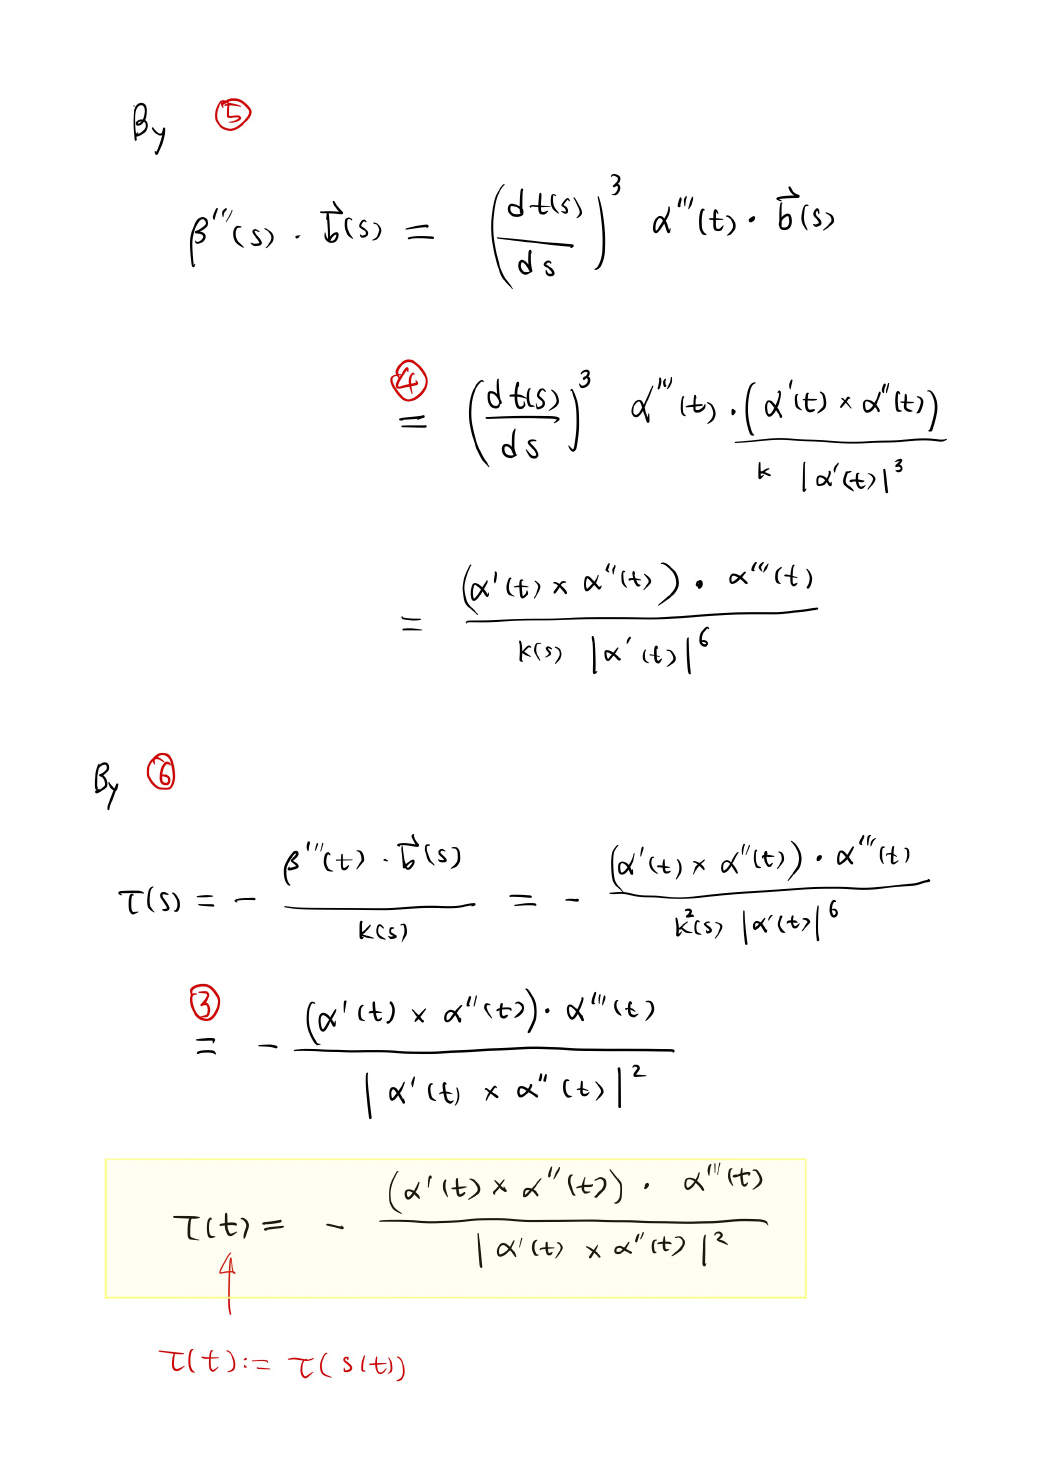 By ⑤
β'''(s) · b⃗(s) = (dt(s)/ds)³ α'''(t) · b⃗(s)
④= (dt(s)/ds)³ α'''(t) · (α'(t) × α''(t)) / k |α'(t)|³
= (α'(t) × α''(t)) · α'''(t) / k(s) |α'(t)|⁶
By ⑥
τ(s) = - β'''(t) · b⃗(s) / k(s) = - (α'(t) × α''(t)) · α'''(t) / k²(s) |α'(t)|⁶
③= - (α'(t) × α''(t)) · α'''(t) / |α'(t) × α''(t)|²
τ(t) = - (α'(t) × α''(t)) · α'''(t) / |α'(t) × α''(t)|²
τ(t) := τ(s(t))